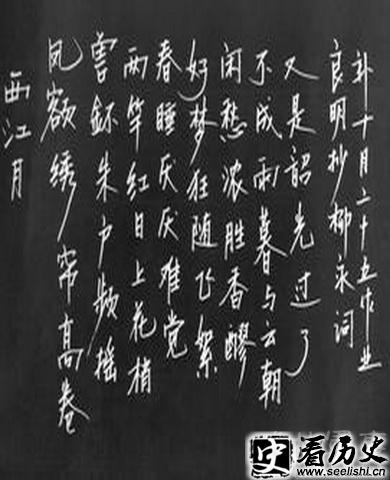 西江月
凤额绣帘高卷
兽钚朱户频摇
两竿红日上花梢
春睡厌厌难觉
好梦狂随飞絮
闲愁浓胜香醪
不成雨暮与云朝
又是韶光过了
良明抄柳永词
补十月二十五作业
史 看历史
www.seelishi.cn